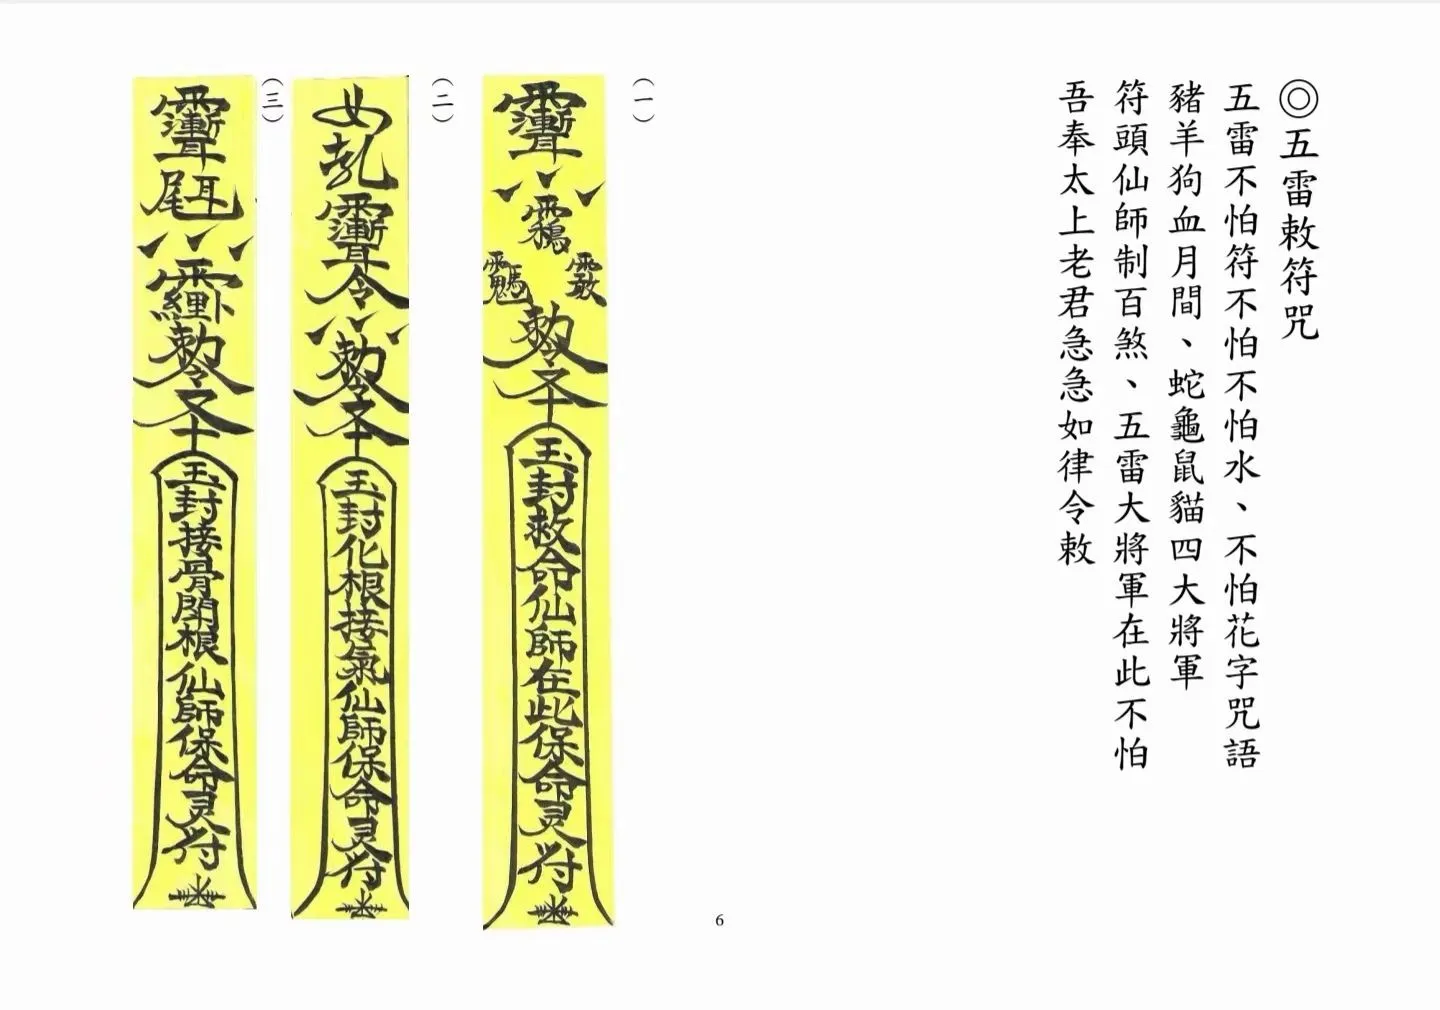 ◎五雷敕符咒
五雷不怕符不怕不怕水、不怕花字咒語
豬羊狗血月間、蛇龜鼠貓四大將軍
符頭仙師制百煞、五雷大將軍在此不怕
吾奉太上老君急急如律令敕
（一）
玉封救命仙師在此保命灵符
（二）
令
玉封化根接氣仙師保命灵符
（三）
玉封接骨閉根仙師保命灵符
6